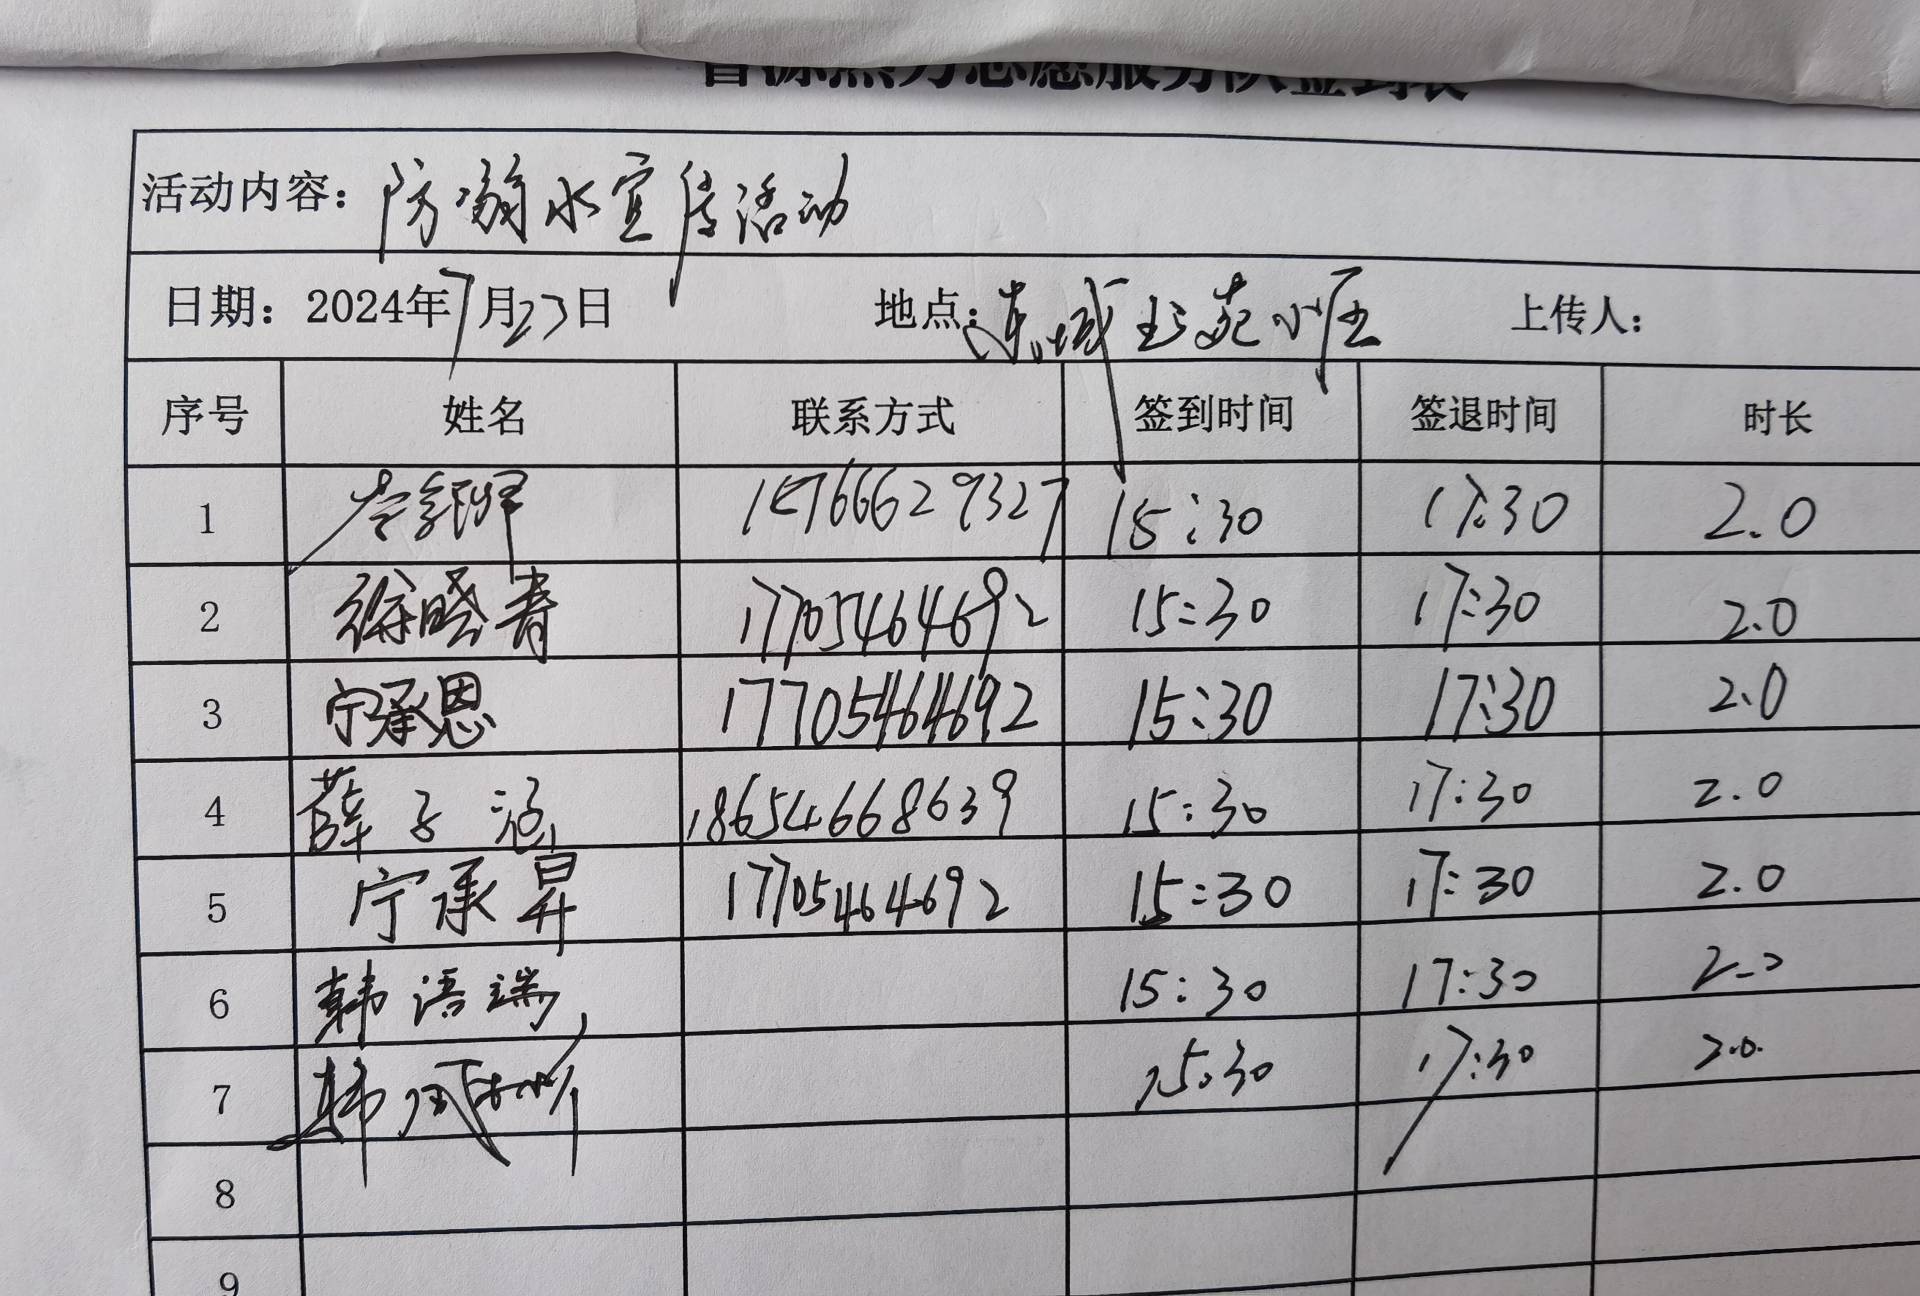 热力志愿服务队签到表
活动内容：防溺水宣传活动
日期：2024年7月23日 地点：东城玉苑小区 上传人：
序号 姓名 联系方式 签到时间 签退时间 时长
1 15766629327 15:30 17:30 2.0
2 徐晓青 17705464692 15:30 17:30 2.0
3 宁承恩 17705464692 15:30 17:30 2.0
4 薛子涵 18654668639 15:30 17:30 2.0
5 宁承昇 17705464692 15:30 17:30 2.0
6 韩语端 15:30 17:30 2.0
7 韩 15:30 17:30 2.0
8
9